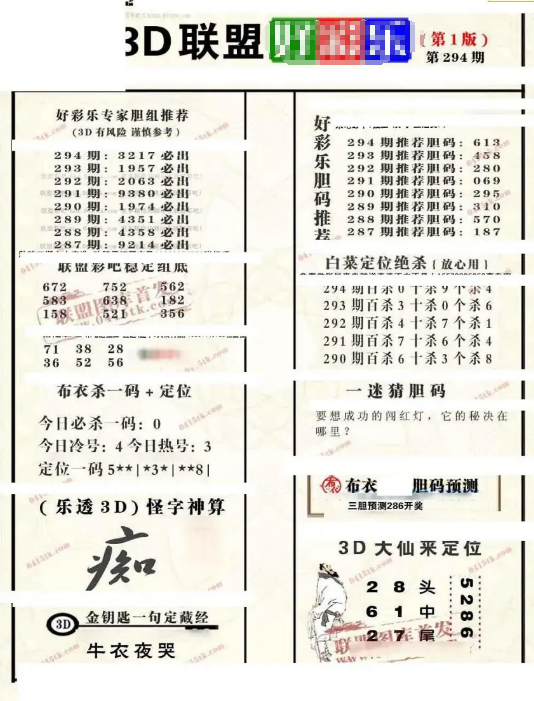 3D联盟好彩乐
(第1版)
第294期
好彩乐专家胆组推荐
(3D有风险 谨慎参考)
294期:3217必出
293期:1957必出
292期:2063必出
291期:9380必出
290期:1974必出
289期:4351必出
288期:4358必出
287期:9214必出
联盟彩吧稳定组底
672 752 562
583 638 182
158 521 356
71 38 28
36 52 56
布衣杀一码+定位
今日必杀一码:0
今日冷号:4今日热号:3
定位一码5**|*3*|**8|
(乐透3D)怪字神算
痴
3D 金钥匙一句定藏经
牛衣夜哭
好彩乐胆码推荐
294期推荐胆码:613
293期推荐胆码:458
292期推荐胆码:280
291期推荐胆码:069
290期推荐胆码:295
289期推荐胆码:310
288期推荐胆码:570
287期推荐胆码:187
白菜定位绝杀{放心用}
294期百杀0十杀9个杀4
293期百杀3十杀0个杀6
292期百杀4十杀7个杀1
291期百杀7十杀6个杀4
290期百杀6十杀3个杀8
一迷猜胆码
要想成功的闯红灯,它的秘决在
哪里?
布衣 胆码预测
三胆预测286开奖
3D大仙来定位
2 8 头
6 1 中
2 7 尾
5286
联盟图库首发
0415tk.com